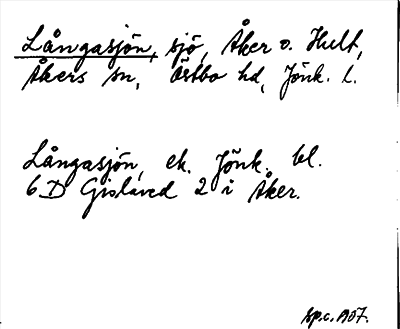 Långasjön, sjö, Åker o. Hult,
Åkers sn, Östbo hd, Jönk. l.
Långasjön, ek. Jönk. bl.
6 D Gislaved 2 i Åker.